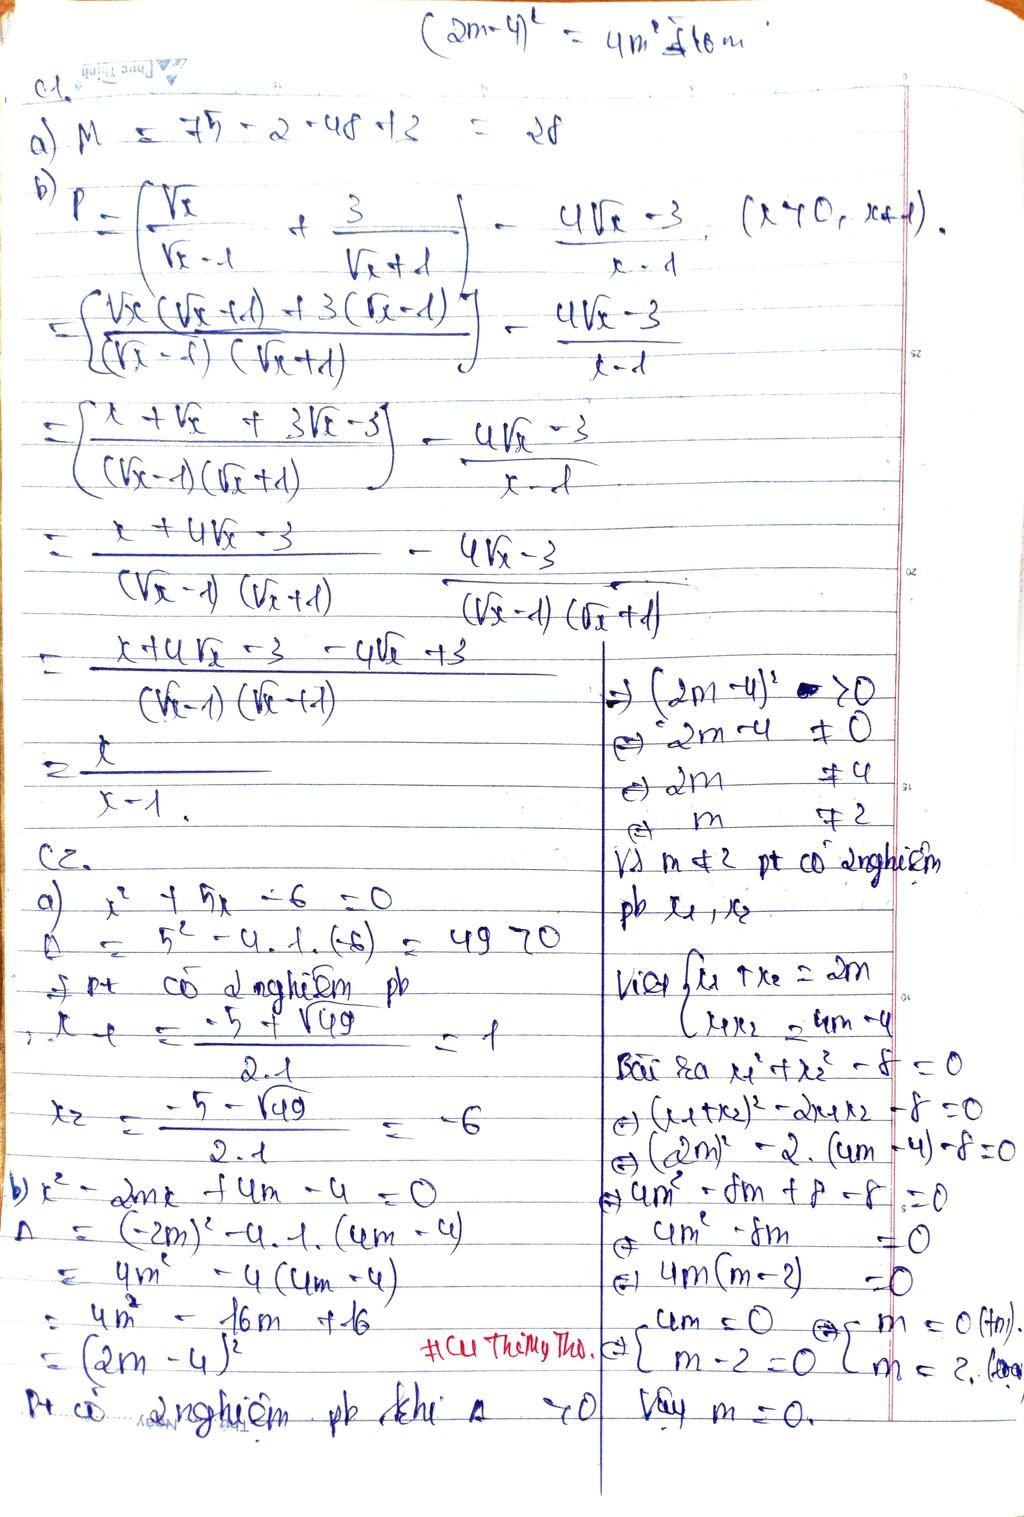 (2m-4)² = 4m² 16m
C1.
Phuc Thinh
a) M = 75 - 2 - 48 + 3 = 28
b) P = (√x/(√x-1) + 3/(√x+1)) - (4√x-3)/(x-1). (x>0, x≠1).
= [(√x(√x+1) + 3(√x-1))/((√x-1)(√x+1))] - (4√x-3)/(x-1)
= [(x + √x + 3√x-3)/((√x-1)(√x+1))] - (4√x-3)/(x-1)
= (x + 4√x - 3)/((√x-1)(√x+1)) - (4√x-3)/((√x-1)(√x+1))
= (x+4√x-3 - 4√x+3)/((√x-1)(√x+1))
= x/(x-1).
C2.
a) x² + 5x - 6 = 0
Δ = 5² - 4.1.(-6) = 49 > 0
Pt có 2 nghiệm pb
x1 = (-5 + √49)/2.1 = 1
x2 = (-5 - √49)/2.1 = -6
b) x² - 2mx + 4m - 4 = 0
Δ = (-2m)² - 4.1.(4m - 4)
= 4m² - 4(4m-4)
= 4m² - 16m + 16
= (2m - 4)²
#Cu Thị Mỹ Tho.
Pt có 2 nghiệm pb khi Δ > 0
=> (2m-4)² > 0
<=> 2m-4 ≠ 0
<=> 2m ≠ 4
<=> m ≠ 2
Vs m ≠ 2 pt có 2 nghiệm
pb x1, x2
Viet {x1 + x2 = 2m
x1x2 = 4m-4
Bài ra x1² + x2² - 8 = 0
<=> (x1+x2)² - 2x1x2 - 8 = 0
<=> (2m)² - 2.(4m-4) - 8 = 0
<=> 4m² - 8m + 8 - 8 = 0
<=> 4m² - 8m = 0
<=> 4m(m-2) = 0
<=> {4m = 0 <=> {m = 0 (tm).
m-2 = 0 m = 2.
Vậy m = 0.